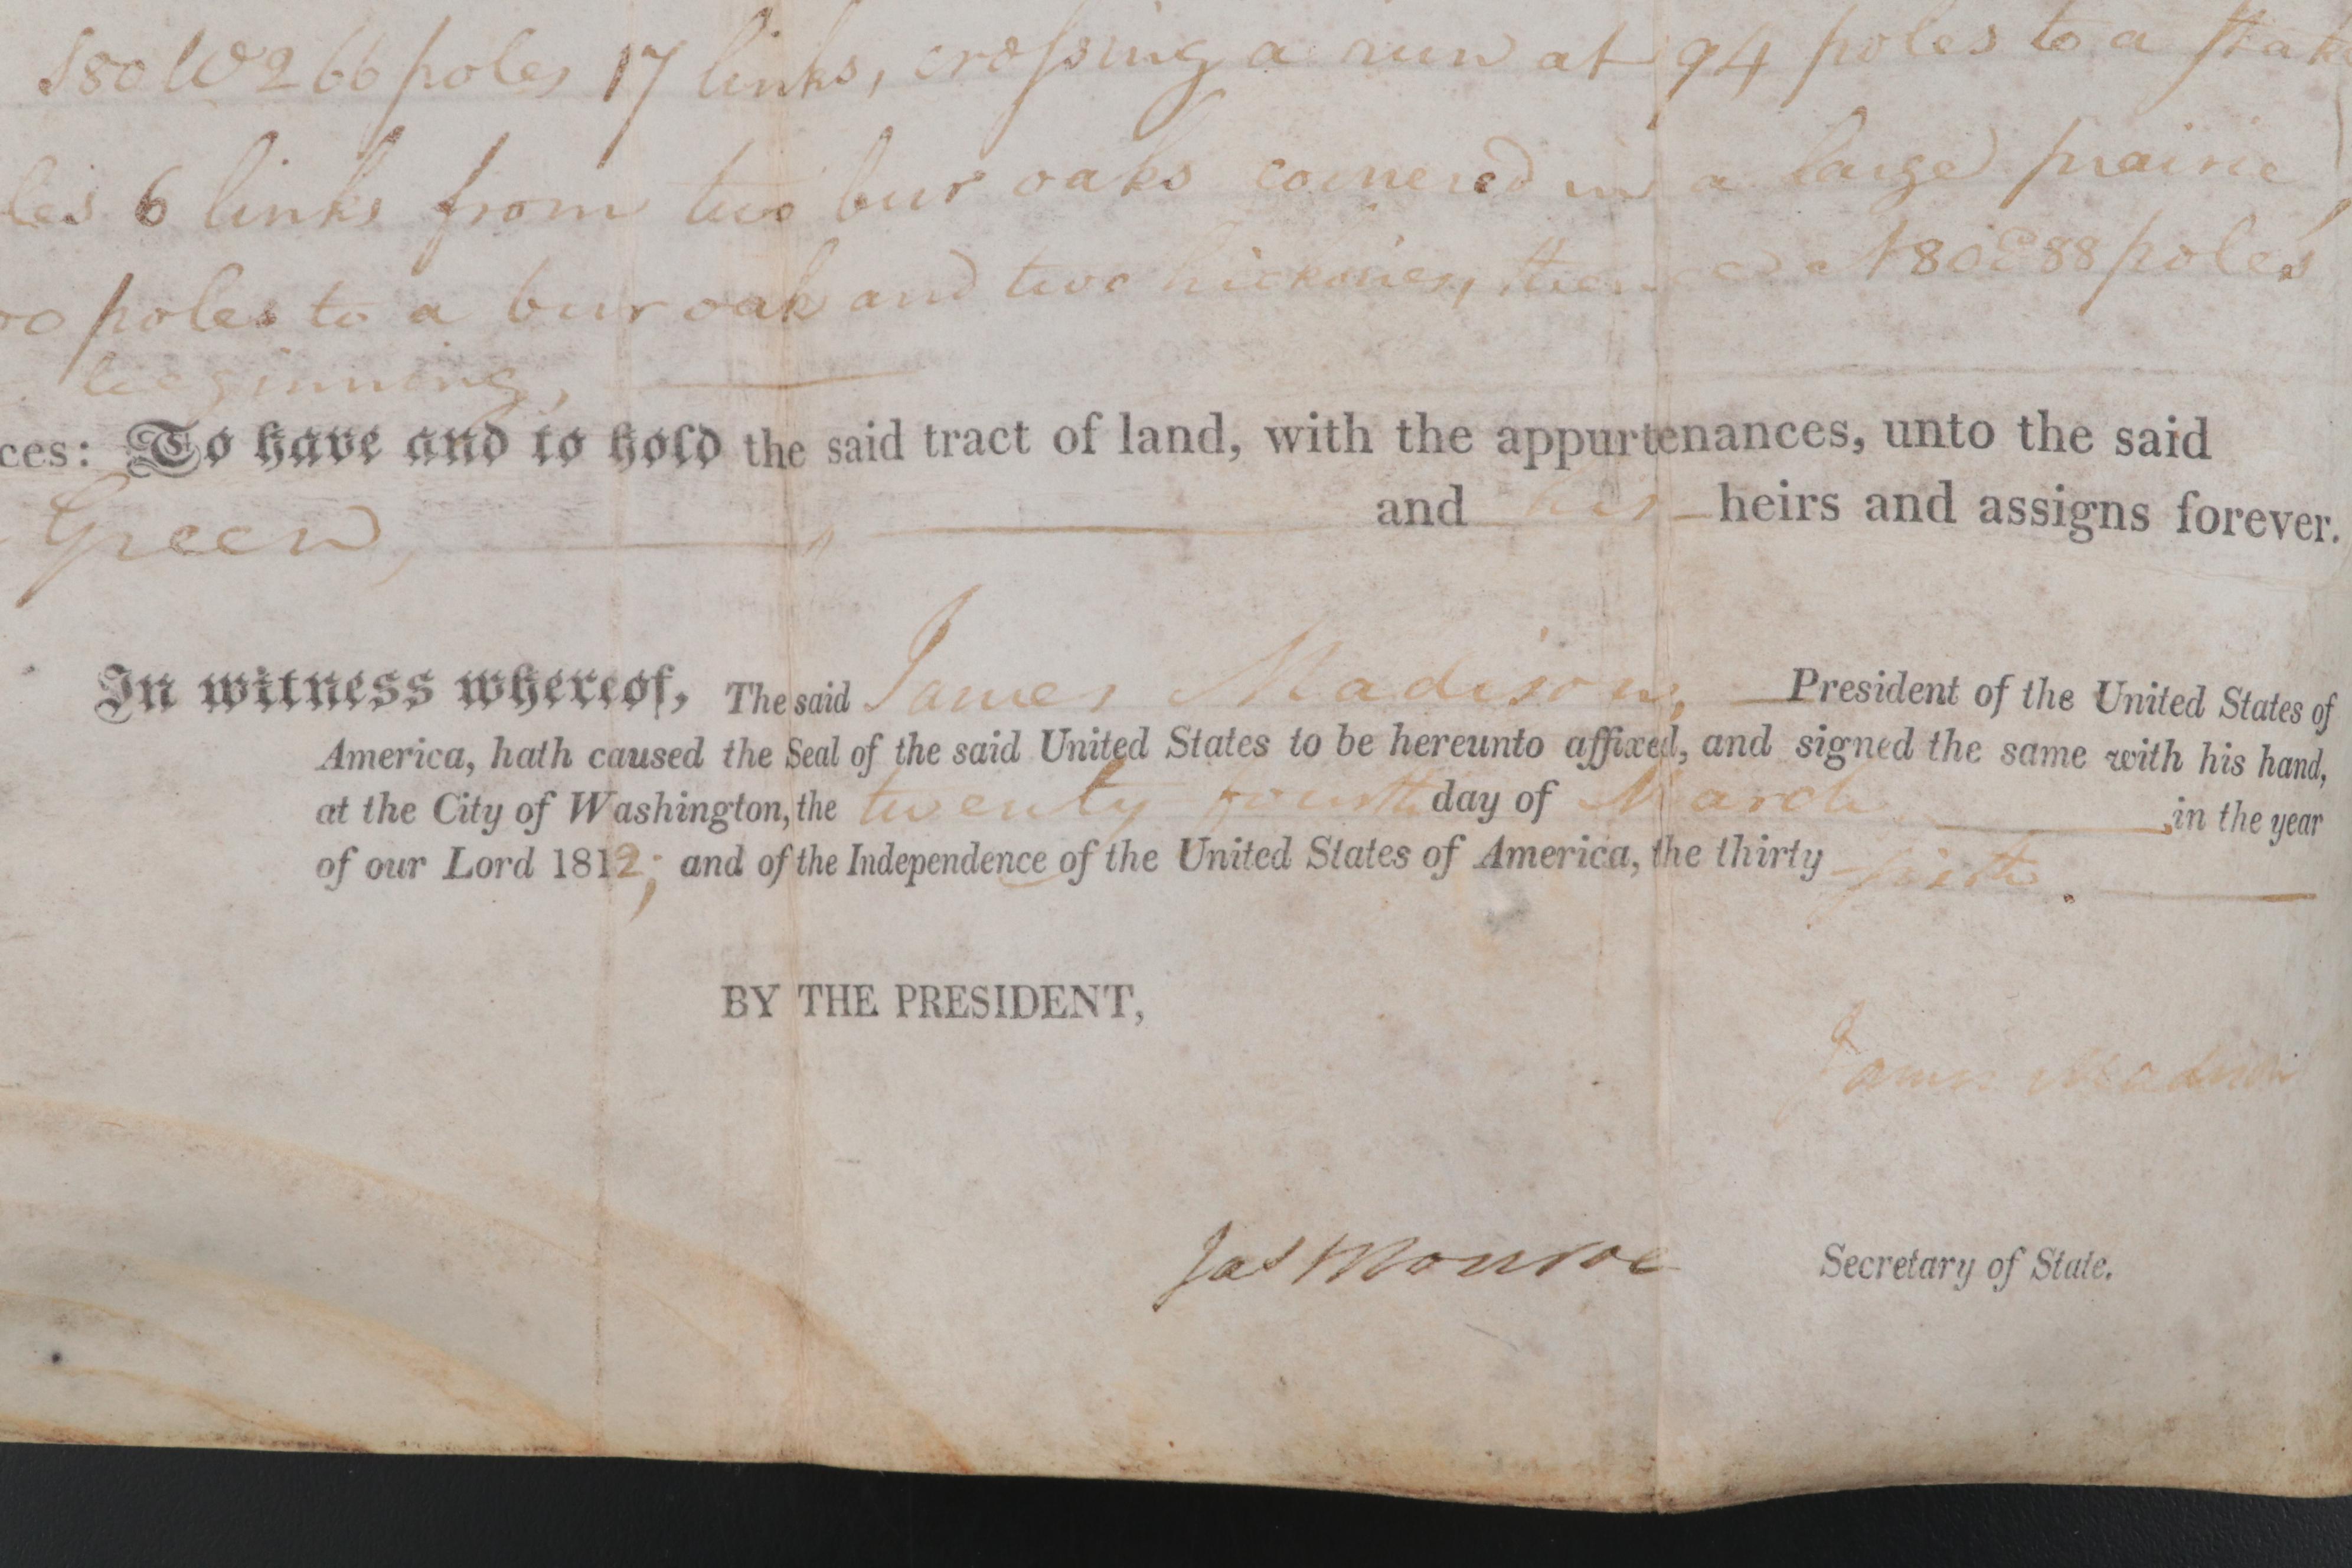 S80W266 poles 17 links, crossing a run at 94 poles to a stake
les 6 links from two bur oaks cornered in a large prairie
00 poles to a bur oak and two hickories, thence N80E88 poles
beginning,
ces: To have and to hold the said tract of land, with the appurtenances, unto the said
Green, and his heirs and assigns forever.
In witness whereof, The said James Madison, President of the United States of
America, hath caused the Seal of the said United States to be hereunto affixed, and signed the same with his hand,
at the City of Washington, the twenty fourth day of March, in the year
of our Lord 1812; and of the Independence of the United States of America, the thirty sixth.
BY THE PRESIDENT,
James Madison
Jas Monroe Secretary of State.